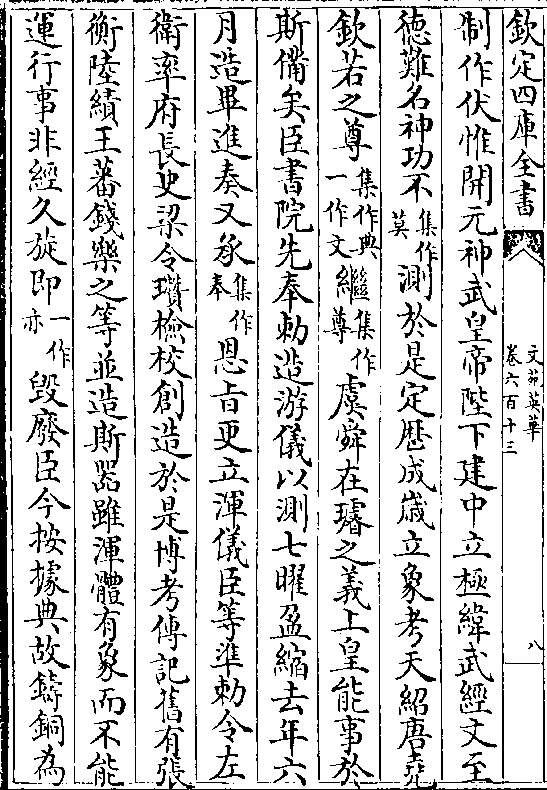 欽定四庫全書
文苑英華
卷六百十三
八
制作伏惟開元神武皇帝陛下建中立極緯武經文至
德難名神功不集作莫測於是定歷成歲立象考天紹唐堯
欽若之尊集作典一作文繼集作尊虞舜在璿之義上皇能事於
斯備矣臣書院先奉勅造游儀以測七曜盈縮去年六
月造畢進奏又承集作奉恩旨更立渾儀臣等準勅令左
衛率府長史梁令瓚檢校創造於是博考傳記舊有張
衡陸績王蕃錢樂之等並造斯器雖渾體有象而不能
運行事非經久旋即一作亦毀廢臣今按據典故鑄銅為